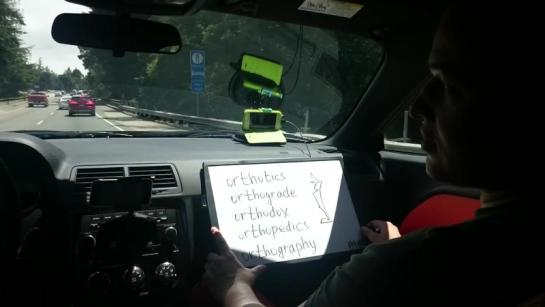 orthotics
orthograde
orthodox
orthopedics
orthography